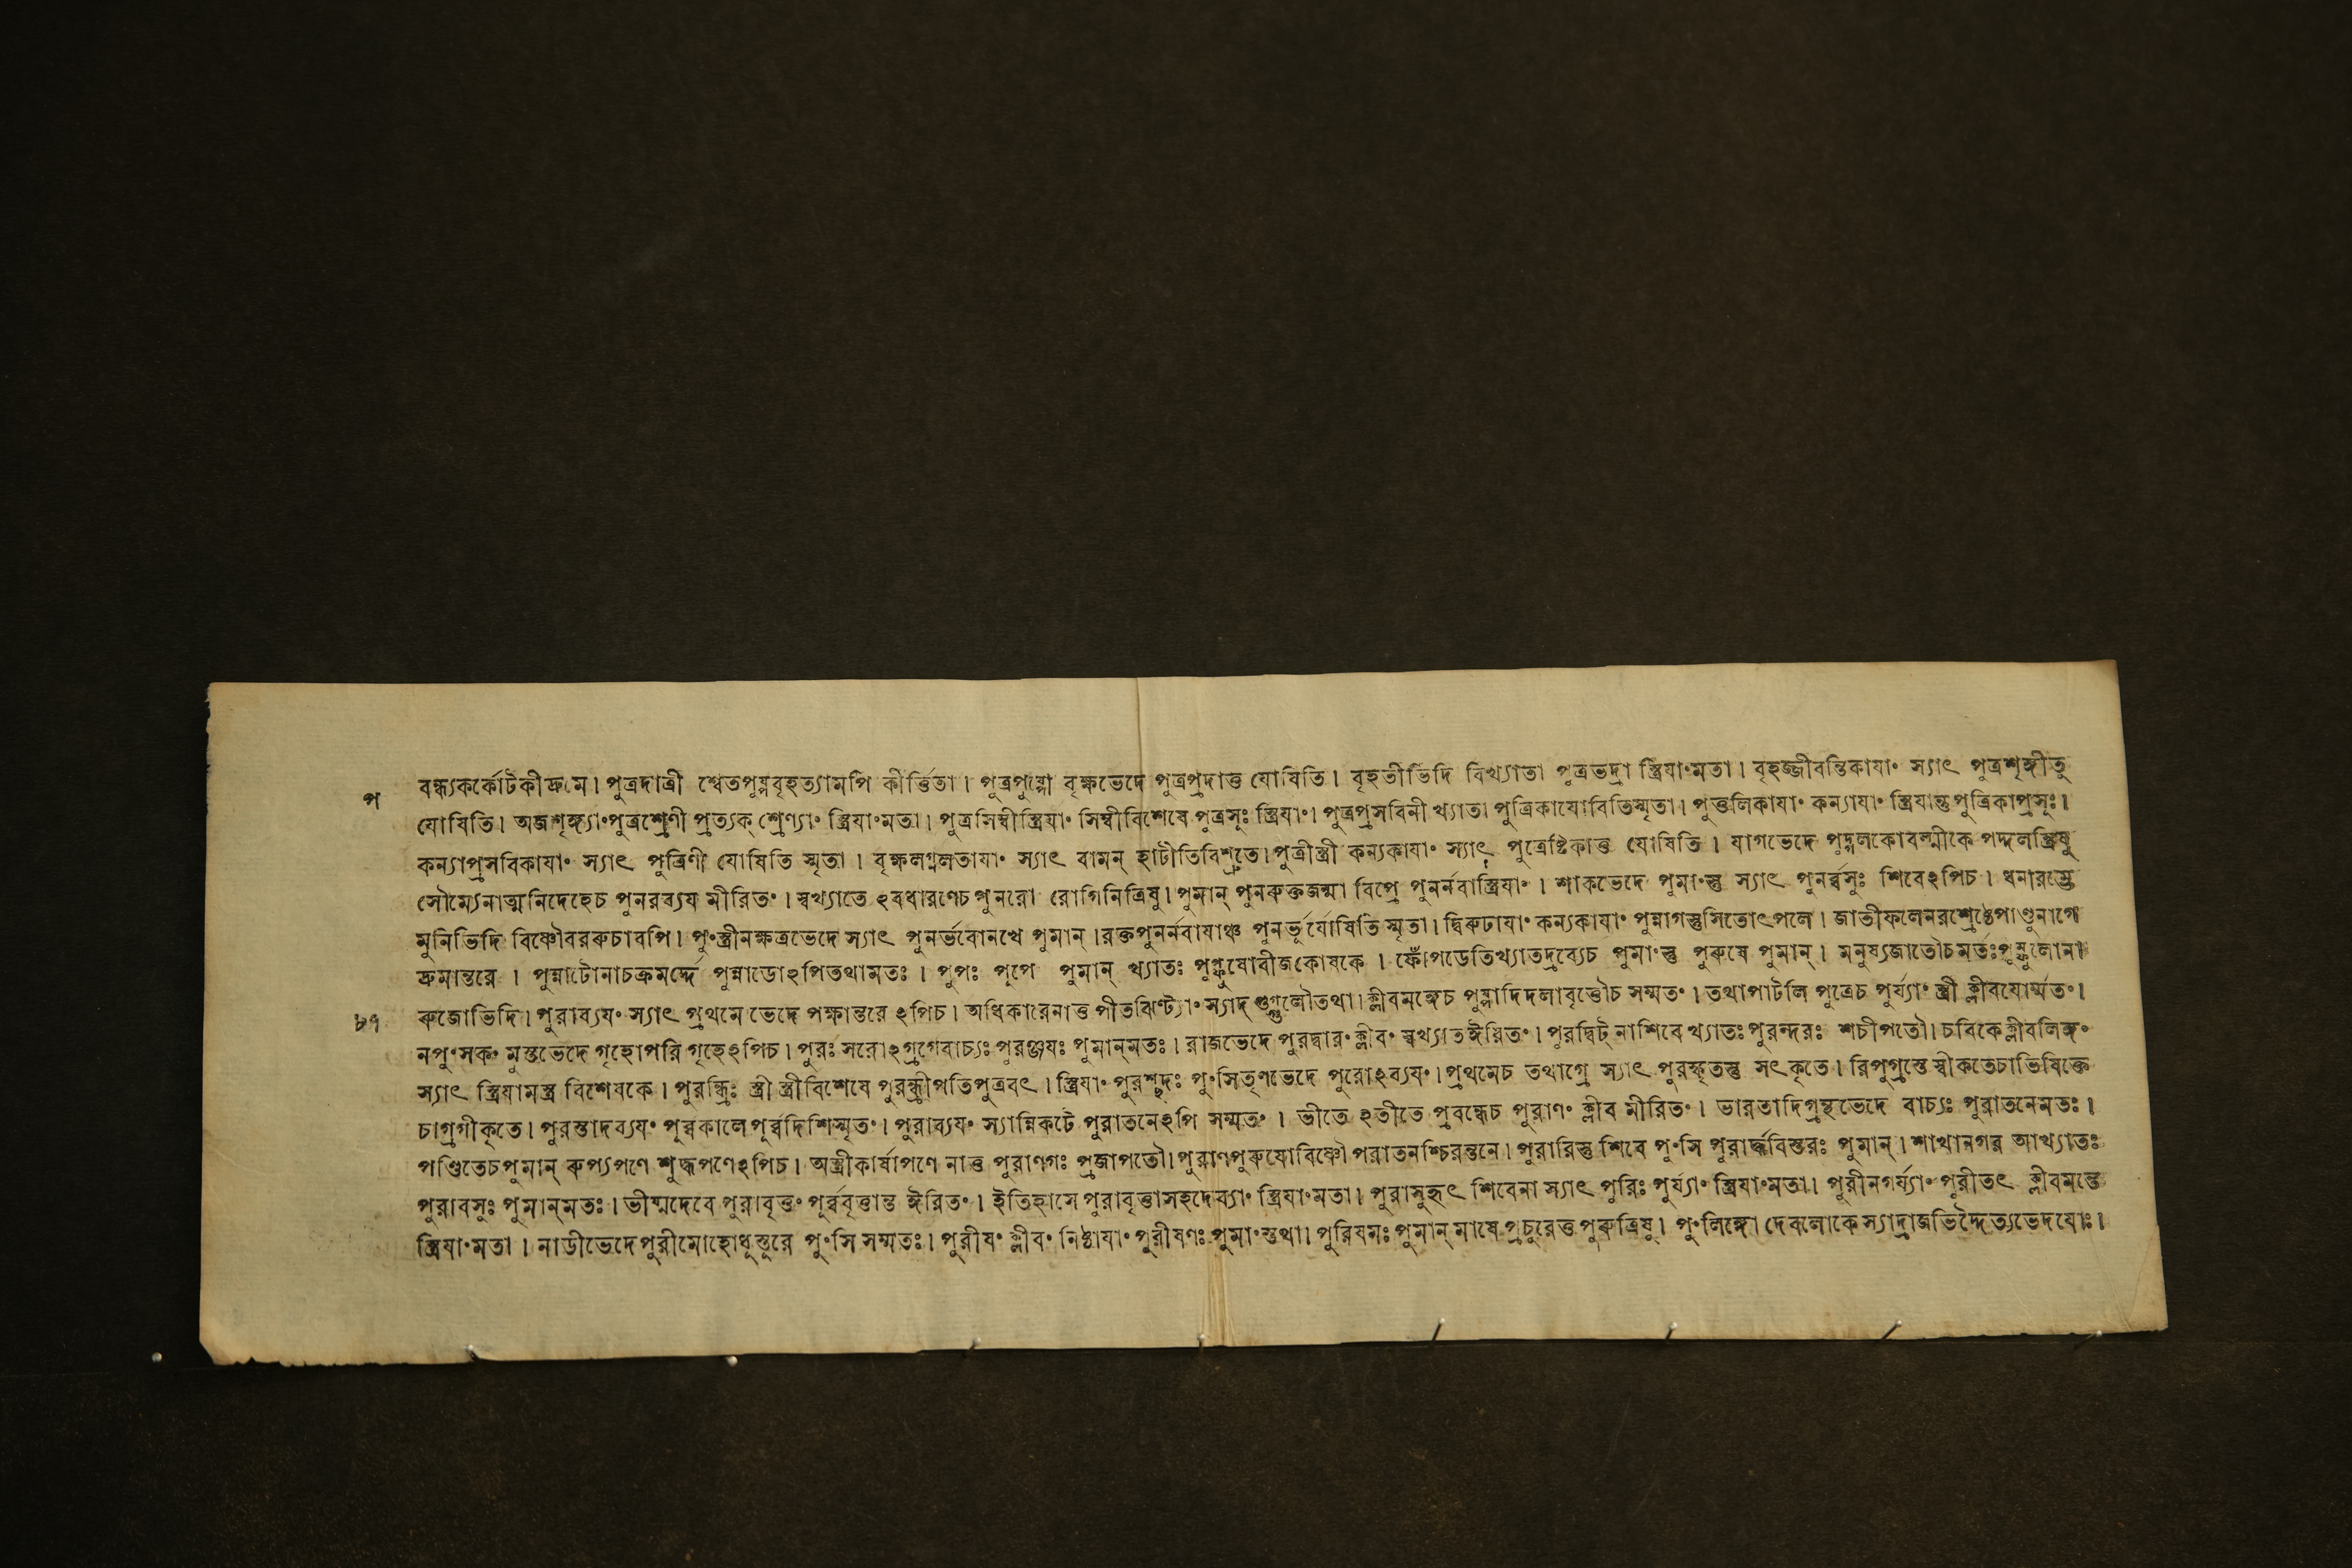 প
বন্ধ্যকর্কোটকীদ্রুমে। পুত্রদাত্রী শ্বেতপুষ্পবৃহত্যামপি কীর্ত্তিতা। পুত্রপুষ্পো বৃক্ষভেদে পুত্রপ্রদাত্তু যোষিতি। বৃহতীভিদি বিখ্যাতা পুত্রভদ্রা স্ত্রিযাংমতা। বৃহজ্জীবন্তিকাযাং স্যাৎ পুত্রশৃঙ্গীতু
যোষিতি। অজশৃঙ্গ্যাংপুত্রশ্রেণী প্রত্যক্ শ্রেণ্যাং স্ত্রিযাংমতা। পুত্রসিম্বীস্ত্রিযাং সিম্বীবিশেষে পুত্রসুঃ স্ত্রিযাং। পুত্রপ্রসবিনী খ্যাতা পুত্রিকাযোষিতিস্মৃতা। পুত্তলিকাযাং কন্যাযাং স্ত্রিযান্তুপুত্রিকাপ্রসুঃ।
কন্যাপ্রসবিকাযাং স্যাৎ পুত্রিণী যোষিতি স্মৃতা। বৃক্ষলগ্নলতাযাং স্যাৎ বামন্ হাটীতিবিশ্রুতে। পুত্রীস্ত্রী কন্যকাযাং স্যাৎ পুত্রেষ্টিকাত্তু যোষিতি। যাগভেদে পুদ্গলকোবল্মীকে পদ্গলস্ত্রিষু
সৌম্যেনাত্মনিদেহেচ পুনরব্যয মীরিতং। স্বখ্যাতে ঽবধারণেচ পুনরো রোগিনিত্রিষু। পুমান্ পুনরুক্তজন্মা বিপ্রে পুনর্নবাস্ত্রিযাং। শাকভেদে পুমাংস্তু স্যাৎ পুনর্ব্বসুঃ শিবেঽপিচ। ধনারম্ভে
মুনিভিদি বিষ্ণৌবররুচাবপি। পুংস্ত্রীনক্ষত্রভেদে স্যাৎ পুনর্ভবোনখে পুমান্। রক্তপুনর্নবাযাঞ্চ পুনর্ভূর্যোষিতি স্মৃতা। দ্বিরুঢাযাং কন্যকাযাং পুন্নাগস্তুসিতোৎপলে। জাতীফলেনরশ্রেষ্ঠেপাণ্ডুনাগে
দ্রুমান্তরে। পুন্নাটোনাচক্রমর্দ্দে পুন্নাডোঽপিতথামতঃ। পুপঃ পূপে পুমান্ খ্যাতঃ বীজকোষকে। ফোঁপডেতিখ্যাতদ্রব্যেচ পুমাংস্তু পুরুষে পুমান্। মনুষ্যজাতৌচমতঃ
৮৭
রুজোভিদি। পুরাব্যযং স্যাৎ প্রথমে ভেদে পক্ষান্তরে ঽপিচ। অধিকারেনাত্তু পীতঝিণ্ট্যাং স্যাদ্ গুগ্গুলৌতথা। ক্লীবমঙ্গেচ পুষ্পাদিদলাবৃত্তৌচ সম্মতং। তথাপাটলি পুত্রেচ পুর্য্যাং স্ত্রী ক্লীবযোর্ম্মতং।
নপুংসকং মুস্তভেদে গৃহোপরি গৃহেঽপিচ। পুরঃ সরোঽগ্রগেবাচ্যঃ পুরঞ্জযঃ পুমান্‌মতঃ। রাজভেদে পুরদ্বারং ক্লীবং স্বখ্যাতঈরিতং। পুরদ্বিট্ নাশিবে খ্যাতঃ পুরন্দরঃ শচীপতৌ। চবিকে ক্লীবলিঙ্গং
স্যাৎ স্ত্রিযামস্ত্র বিশেষকে। পুরন্ধ্রিঃ স্ত্রী স্ত্রীবিশেষে পুরন্ধ্রীপতিপুত্রবৎ। স্ত্রিযাং পুরশ্ছদঃ পুংসিতৃণভেদে পুরোঽব্যযং। প্রথমেচ তথাগ্রে স্যাৎ পুরস্কৃতস্তু সৎকৃতে। রিপুগ্রস্তে স্বীকৃতেচাভিষিক্তে
চাগ্রগীকৃতে। পুরস্তাদব্যযং পুর্ব্বকালেপুর্ব্বদিশিস্মৃতং। পুরাব্যযং স্যান্নিকটে পুরাতনেঽপি সম্মতং। ভীতে ঽতীতে প্রবন্ধেচ পুরাণং ক্লীব মীরিতং। ভারতাদিগ্রন্থভেদে বাচ্যঃ পুরাতনেমতঃ।
পণ্ডিতেচপুমান্ রুপ্যপণে শুদ্ধপণেঽপিচ। অস্ত্রীকার্ষাপণে নাত্তু পুরাণগঃ প্রজাপতৌ। পুরাণপুরুষোবিষ্ণৌ পরাতনশ্চিরন্তনে। পুরারিস্তু শিবে পুংসি পুরার্দ্ধবিস্তরঃ পুমান্। শাখানগর আখ্যাতঃ
পুরাবসুঃ পুমান্‌মতঃ। ভীষ্মদেবে পুরাবৃত্তং পুর্ব্ববৃত্তান্ত ঈরিতং। ইতিহাসে পুরাবৃত্তাসহদেব্যাং স্ত্রিযাংমতা। পুরাসুহৃৎ শিবেনা স্যাৎ পুরিঃ পুর্য্যাং স্ত্রিযাংমতা। পুরীনগর্য্যাং পুরীতৎ ক্লীবমন্ত্রে
স্ত্রিযাংমতা। নাডীভেদে পুরীমোহোধুস্তুরে পুংসি সম্মতঃ। পুরীষং ক্লীবং নিষ্ঠাযাং পুরীষণঃ পুমাংস্তথা। পুরিষমঃ পুমান্ মাষে প্রচুরেত্তু পুরুত্রিষু। পুংলিঙ্গো দেবলোকে স্যাদ্রাজভিদ্দৈত্যভেদযোঃ।